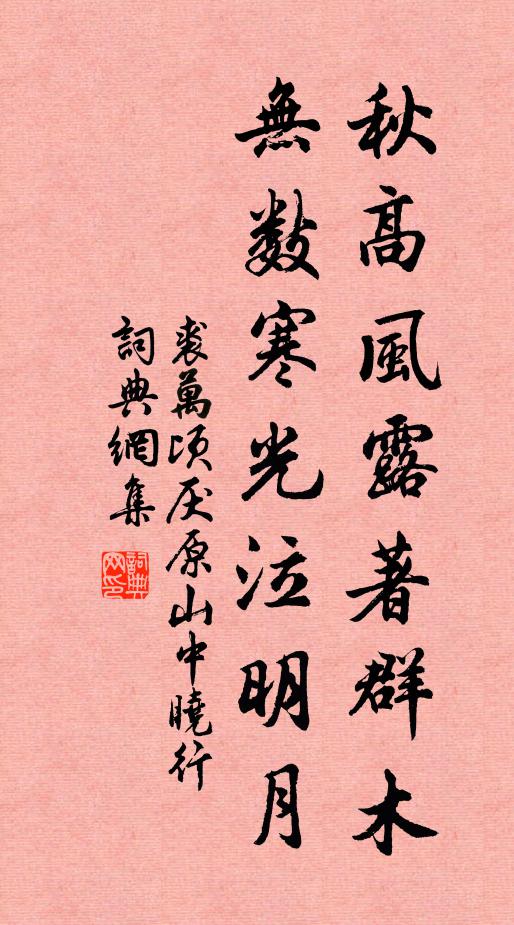 秋高風露著群木
無数寒光泣明月
裘萬頃厌原山中曉行
詞典網集
詞典網印